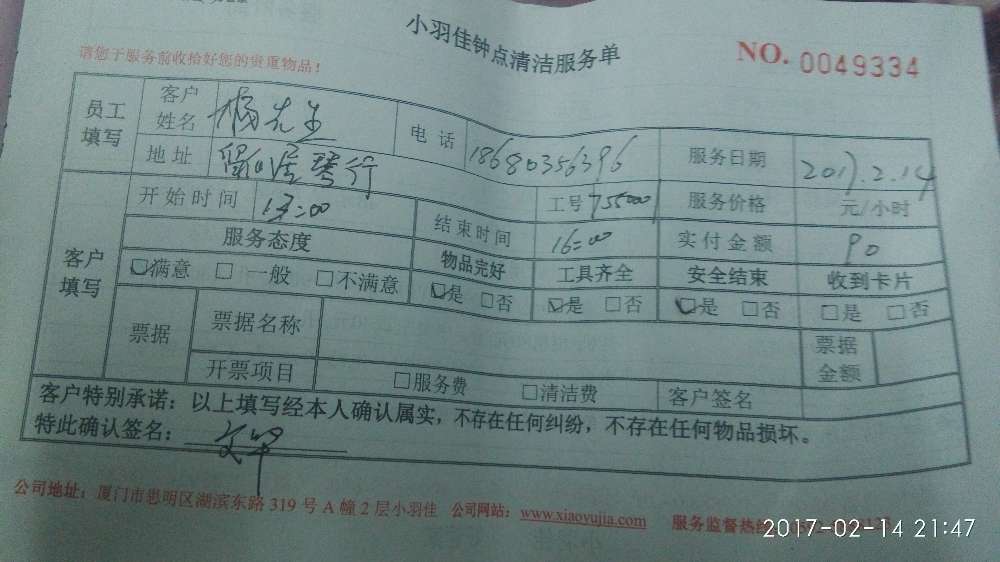 小羽佳钟点清洁服务单
NO. 0049334
请您于服务前收拾好您的贵重物品！
员工填写 客户姓名 杨先生 电话 18680356396 服务日期 2017.2.14
地址 琴行 工号 755000 服务价格 元/小时
客户填写 开始时间 13:00 结束时间 16:00 实付金额 90
服务态度 物品完好 工具齐全 安全结束 收到卡片
☑满意 □一般 □不满意 ☑是 □否 ☑是 □否 ☑是 □否 □是 □否
票据 票据名称 票据金额
开票项目 □服务费 □清洁费 客户签名
客户特别承诺：以上填写经本人确认属实，不存在任何纠纷，不存在任何物品损坏。
特此确认签名：
公司地址：厦门市思明区湖滨东路 319 号 A 幢 2 层小羽佳 公司网站：www.xiaoyujia.com 服务监督热线
2017-02-14 21:47